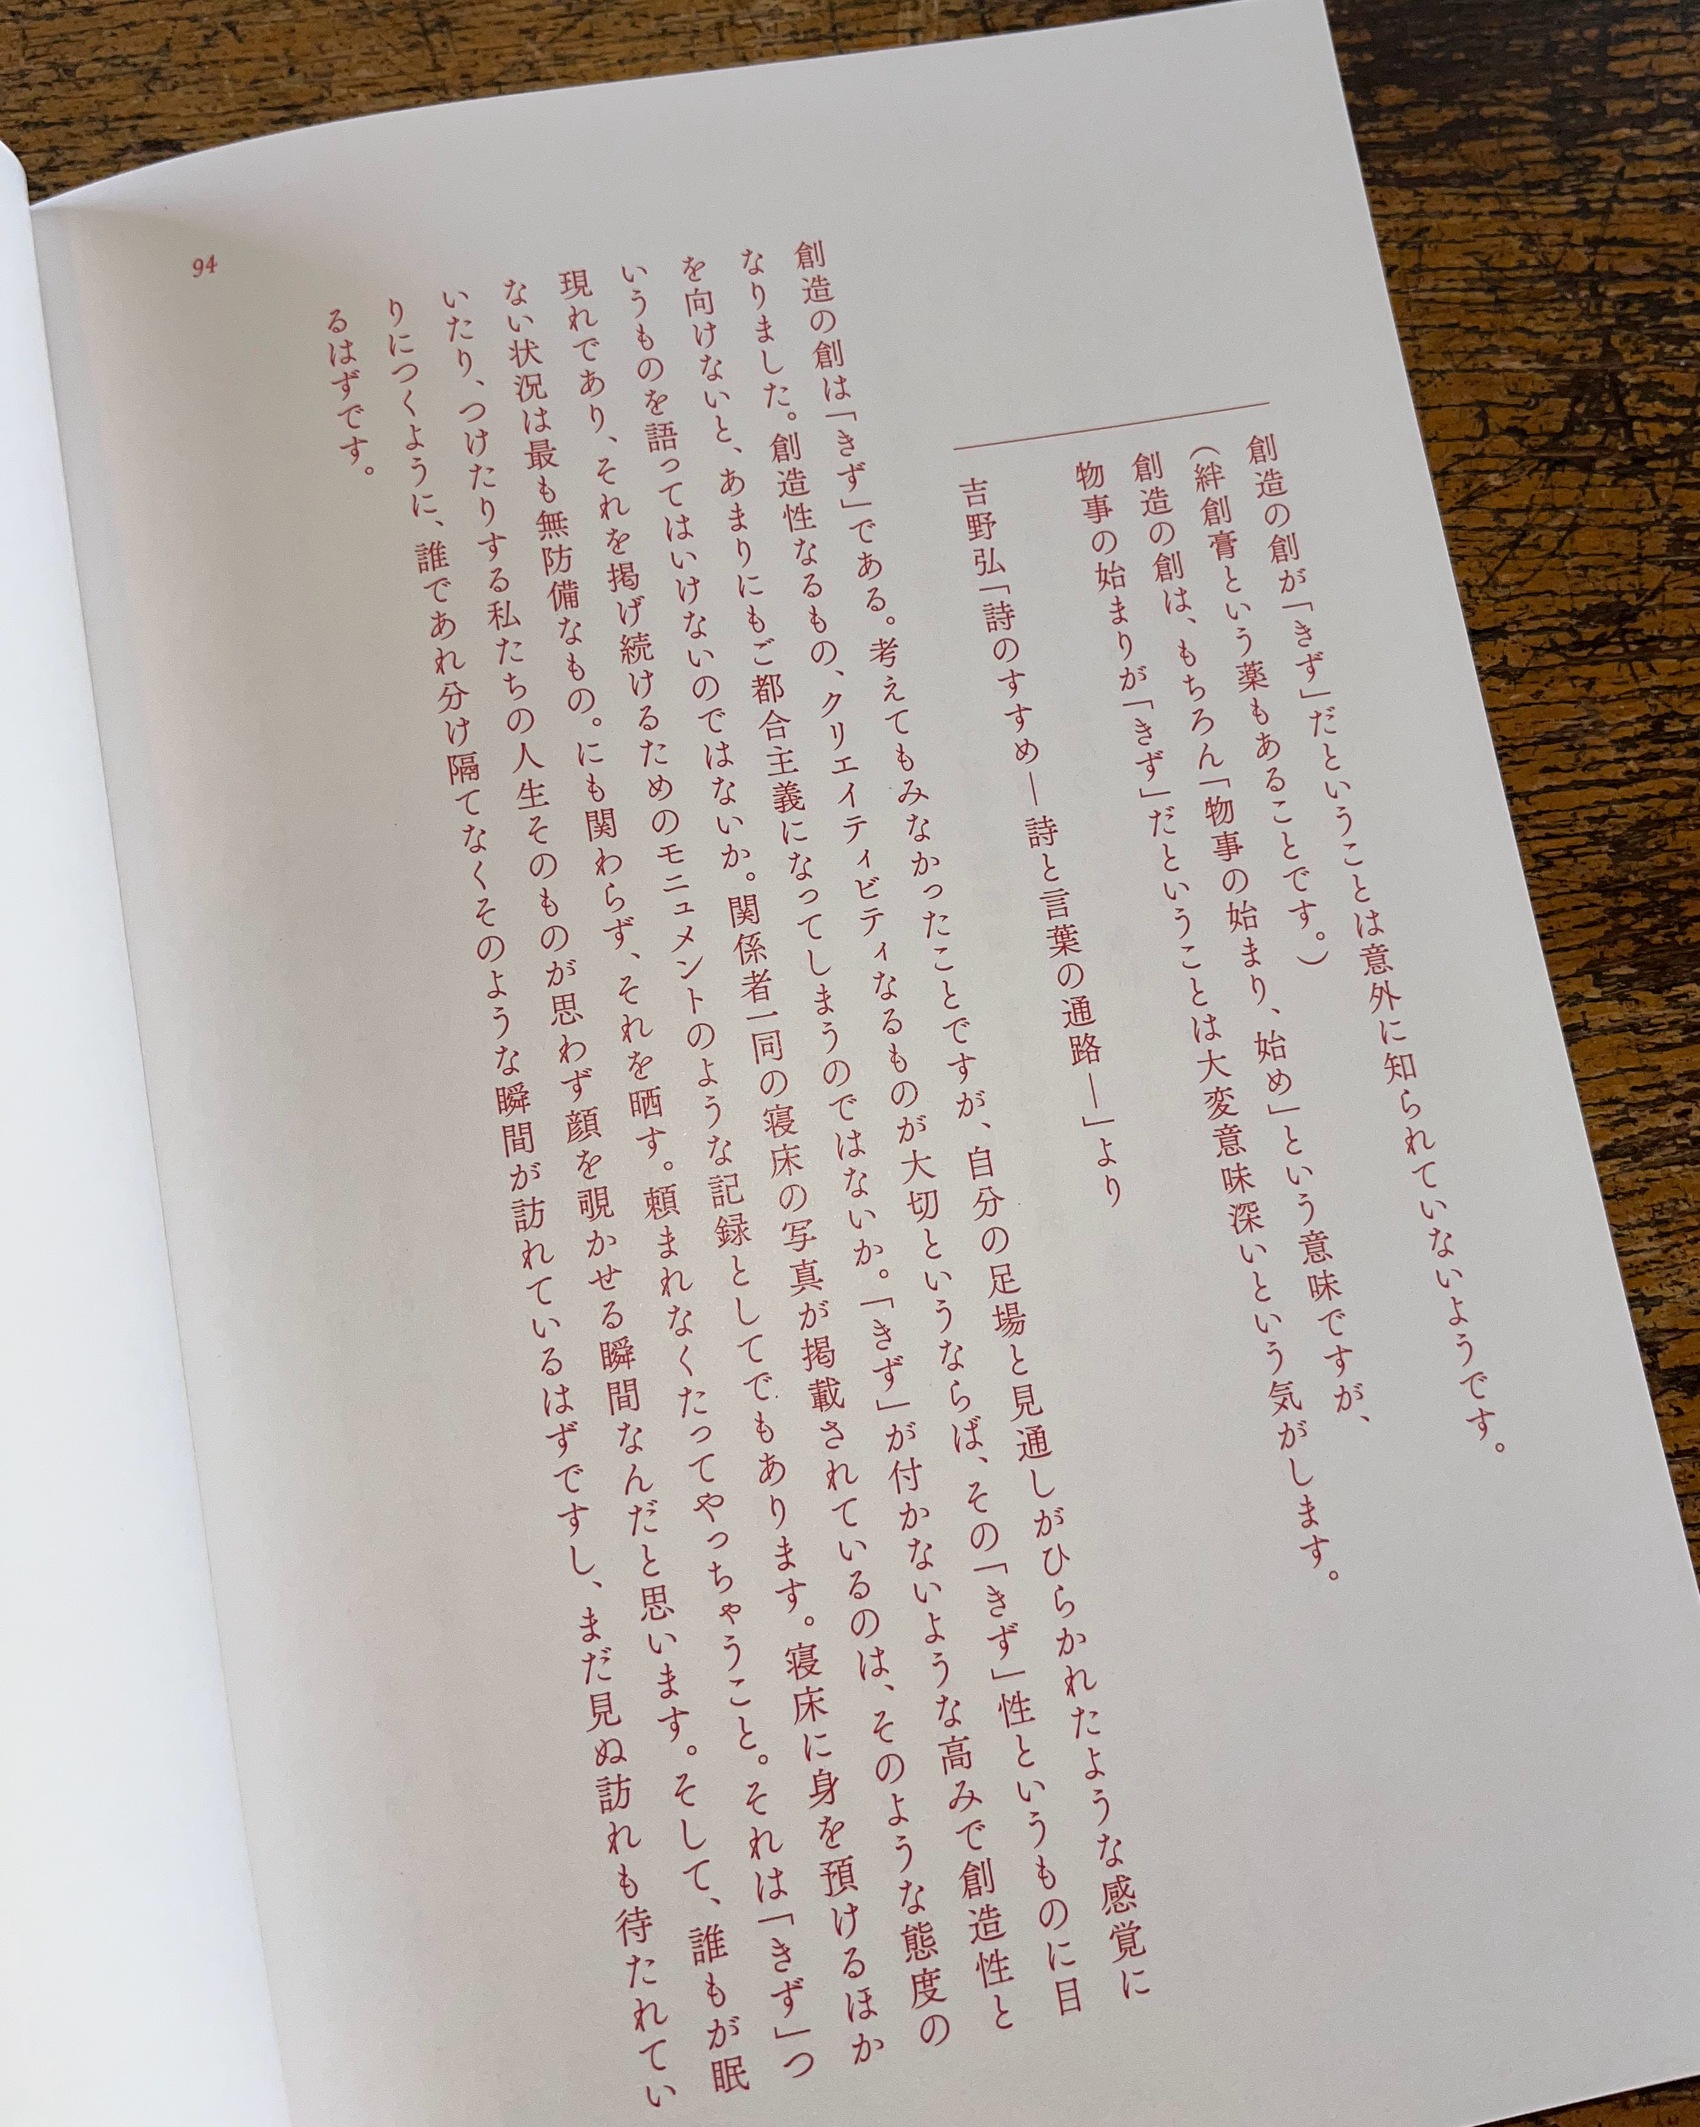 創造の創が「きず」だということは意外に知られていないようです。
(絆創膏という薬もあることです。)
創造の創は、もちろん「物事の始まり、始め」という意味ですが、
物事の始まりが「きず」だということは大変意味深いという気がします。
吉野弘「詩のすすめ—詩と言葉の通路—」より
創造の創は「きず」である。考えてもみなかったことですが、自分の足場と見通しがひらかれたような感覚に
なりました。創造性なるもの、クリエイティビティなるものが大切というならば、その「きず」性というものに目
を向けないと、あまりにもご都合主義になってしまうのではないか。「きず」が付かないような高みで創造性と
いうものを語ってはいけないのではないか。関係者一同の寝床の写真が掲載されているのは、そのような態度の
現れであり、それを掲げ続けるためのモニュメントのような記録としてでもあります。寝床に身を預けるほか
ない状況は最も無防備なもの。にも関わらず、それを晒す。頼まれなくたってやっちゃうこと。それは「きず」つ
いたり、つけたりする私たちの人生そのものが思わず顔を覗かせる瞬間なんだと思います。そして、誰もが眠
りにつくように、誰であれ分け隔てなくそのような瞬間が訪れているはずですし、まだ見ぬ訪れも待たれてい
るはずです。
94